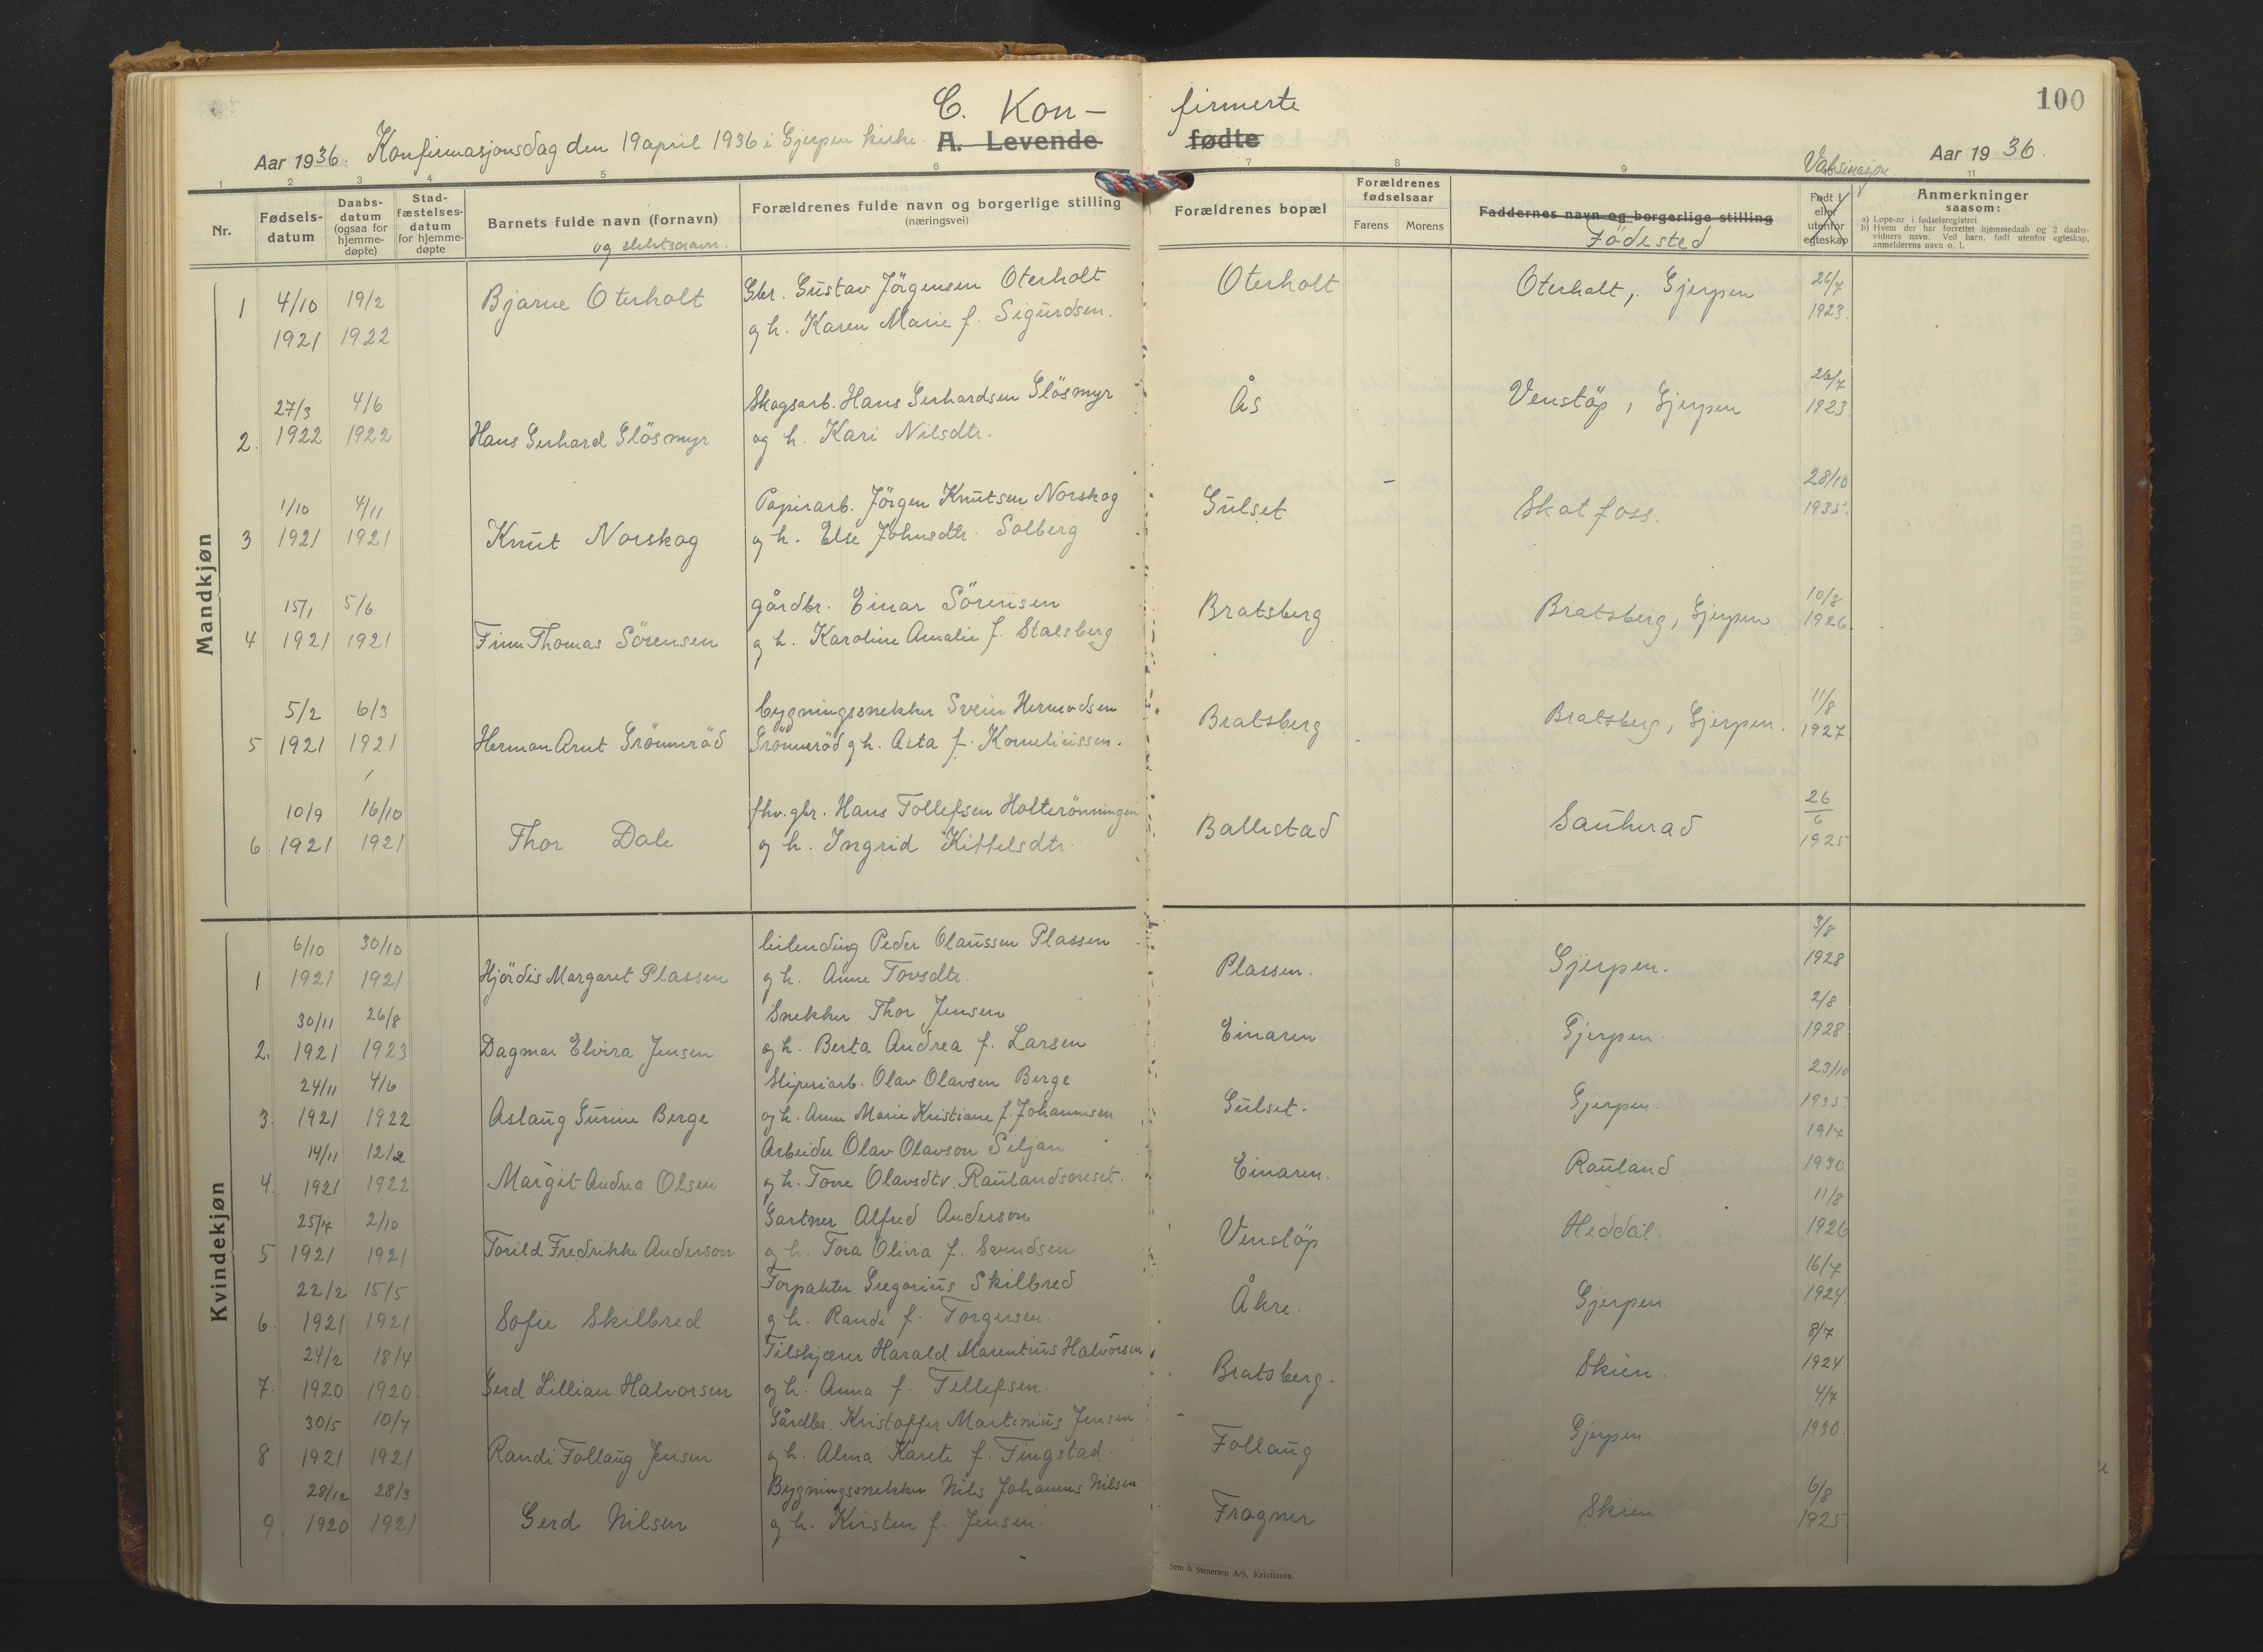 100
C. Kon- firmerte
Aar 1936. Konfirmasjonsdag den 19 april 1936 i Gjerpen kirke. A. Levende fødte Aar 1936.
Vaksinasjon
1 2 3 4 5 6 7 8 9 11
Nr.
Fødsels-
datum
Daabs-
datum
(ogsaa for
hjemme-
døpte)
Stad-
fæstelses-
datum
for hjemme-
døpte
Barnets fulde navn (fornavn)
og slektsnavn.
Forældrenes fulde navn og borgerlige stilling
(næringsvei)
Forældrenes bopæl
Forældrenes
fødselsaar
Farens Morens
Faddernes navn og borgerlige stilling
Födested
Født i
eller
utenfor
egteskap
Anmerkninger
saasom:
a) Løpe-nr i fødselsregistret
b) Hvem der har forrettet hjemmedaab og 2 daabs-
vidners navn. Ved barn, født utenfor egteskap,
anmelderens navn o. l.
Mandkjøn
1 4/10 19/2 Bjarne Oterholt Gbr. Gustav Jörgensen Oterholt Oterholt Oterholt, Gjerpen 26/7
1921 1922 og h. Karen Marie f. Sigurdsen. 1923.
27/3 4/6 Skogsarb. Hans Gerhardsen Glösmyr Ås Venstöp, Gjerpen 26/7
2. 1922 1922 Hans Gerhard Glösmyr og h. Kari Nilsdtr. 1923
1/10 4/11 Papirarb. Jörgen Knutsen Norskog Gulset Skotfoss. 28/10
3 1921 1921 Knut Norskog og h. Else Johnsdtr. Solberg 1935.
15/1 5/6 gårdbr. Einar Sörensen Bratsberg Bratsberg, Gjerpen 10/8
4 1921 1921 Finn Thomas Sörensen og h. Karoline Amalie f. Stalsberg 1926.
5/2 6/3 bygningssnekker Svein Hermodsen Bratsberg Bratsberg, Gjerpen. 11/8
5 1921 1921 Herman Arnt Grönneröd Grönneröd og h. Asta f. Korneliussen. 1927
10/9 16/10 fhv. gbr. Hans Tollefsen Holterönningen Ballestad Sauherad 26/6
6. 1921 1921 Thor Dale og h. Ingrid Kittelsdtr. 1925
Kvindekjøn
6/10 30/10 leilending Peder Olaussen Plassen 3/8
1 1921 1921 Hjördis Margaret Plassen og h. Anne Tovsdtr. Plassen. Gjerpen. 1928
30/11 26/8 Snekker Thor Jensen 2/8
2. 1921 1923 Dagmar Elvira Jensen og h. Berta Andrea f. Larsen Einaren Gjerpen. 1928.
24/11 4/6 Sliperiarb. Olav Olavsen Berge 23/10
3. 1921 1922 Aslaug Gurine Berge og h. Anne Marie Kristiane f. Johannesen Gulset. Gjerpen. 1935.
14/11 12/2 Arbeider Olav Olavson Seljan 1917
4. 1921 1922 Margit Andrea Olsen og h. Tone Olavsdtr. Raulandsoreset. Einaren. Rauland 1930
25/7 2/10 Gartner Alfred Anderson 11/8
5 1921 1921 Torild Fredrikke Anderson og h. Tora Olivra f. Svendsen Venstöp Heddal. 1926
22/2 15/5 Forpakter Gregorius Skilbred 16/7
6. 1921 1921 Sofie Skilbred og h. Randi f. Torgersen. Åkre. Gjerpen. 1924.
24/2 18/4 Tilskjærer Harald Marentius Halvorsen 8/7
7. 1920 1920 Gerd Lillian Halvorsen og h. Anna f. Tellefsen. Bratsberg. Skien. 1924
30/5 10/7 Gårdbr. Kristoffer Martinius Jensen 4/7
8 1921 1921 Randi Follaug Jensen og h. Alma Karete f. Tingstad. Follaug Gjerpen 1930.
28/12 28/3 Bygningssnekker Nils Johannes Nilsen 6/8
9. 1920 1921 Gerd Nilsen og h. Kirsten f. Jensen. Frogner Skien. 1925
Sem & Stenersen A/S, Kristiania.